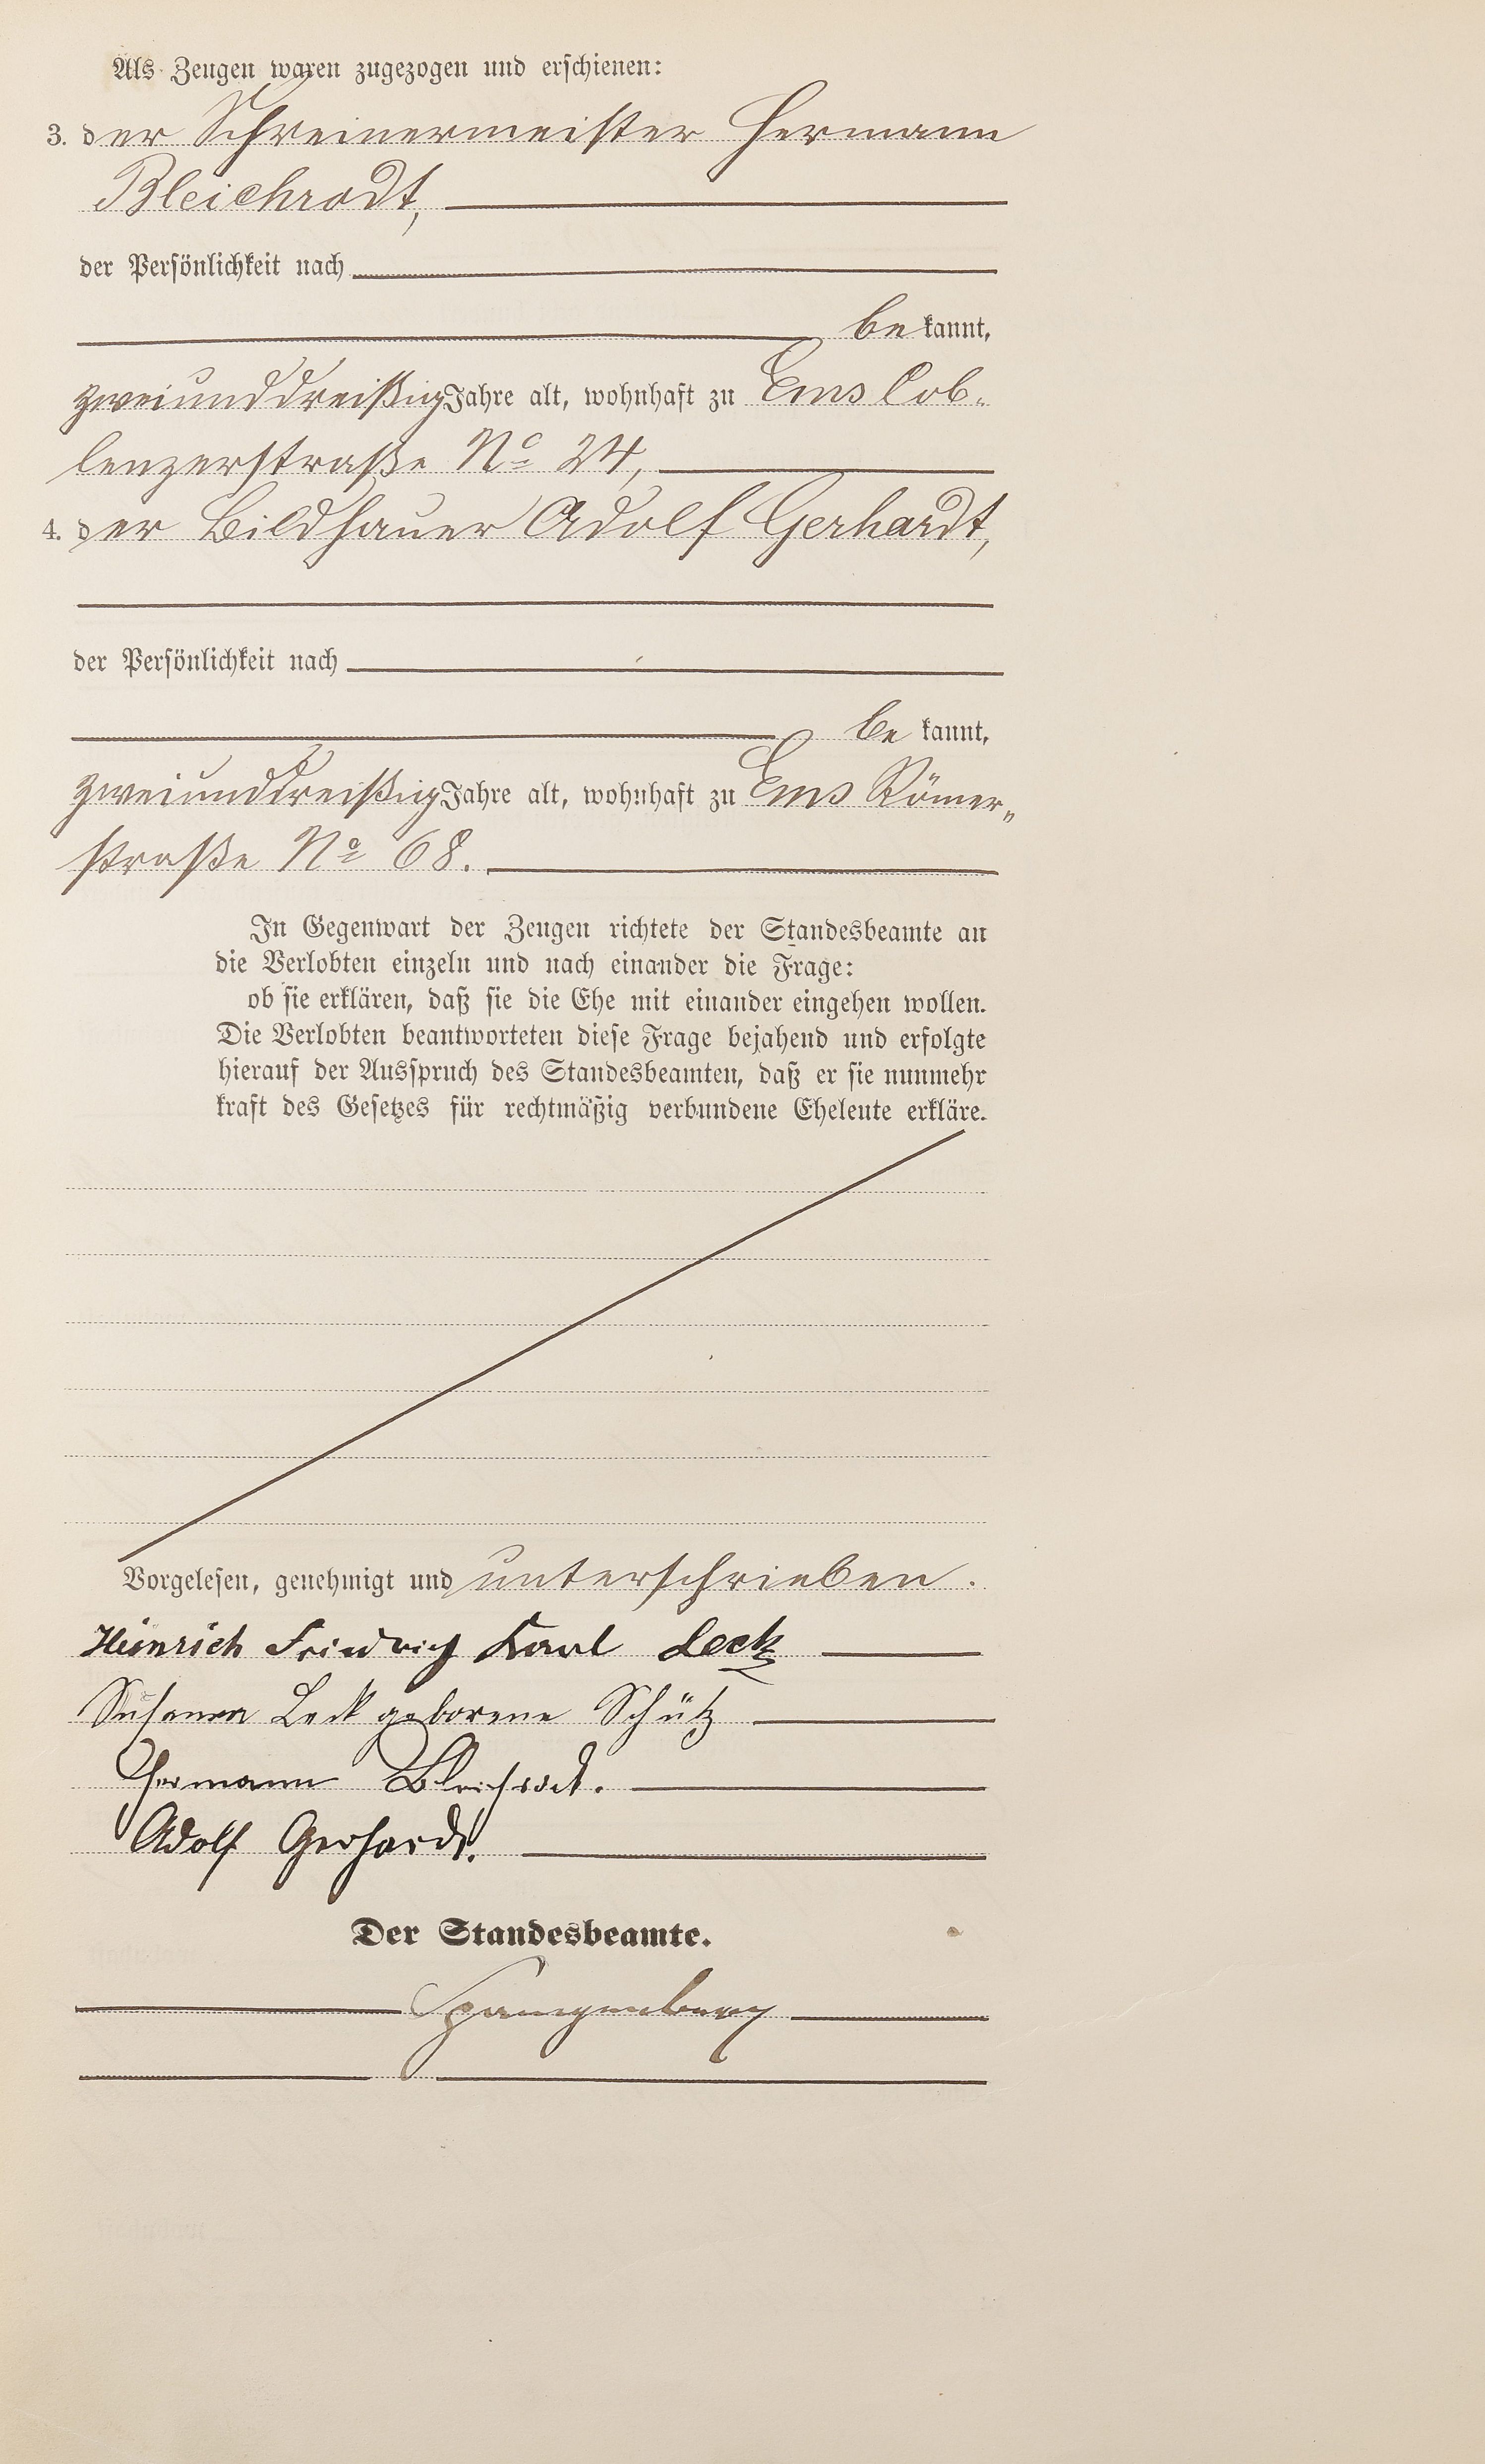 Als Zeugen waren zugezogen und erschienen:
3. der Schreinermeister Hermann
Bleichrodt,
der Persönlichkeit nach
be kannt,
zweiunddreißig Jahre alt, wohnhaft zu Ems Cob-
lenzerstraße No 24,
4. der Bildhauer Adolf Gerhardt,
der Persönlichkeit nach
be kannt,
zweiunddreißig Jahre alt, wohnhaft zu Ems Römer„
straße No 68.
In Gegenwart der Zeugen richtete der Standesbeamte an
die Verlobten einzeln und nach einander die Frage:
ob sie erklären, daß sie die Ehe mit einander eingehen wollen.
Die Verlobten beantworteten diese Frage bejahend und erfolgte
hierauf der Ausspruch des Standesbeamten, daß er sie nunmehr
kraft des Gesetzes für rechtmäßig verbundene Eheleute erkläre.
Vorgelesen, genehmigt und unterschrieben.
Heinrich Friedrich Karl Leck
Susanna Leck geborene Schütz
Hermann Bleichrodt.
Adolf Gerhardt.
Der Standesbeamte.
Spangenberg